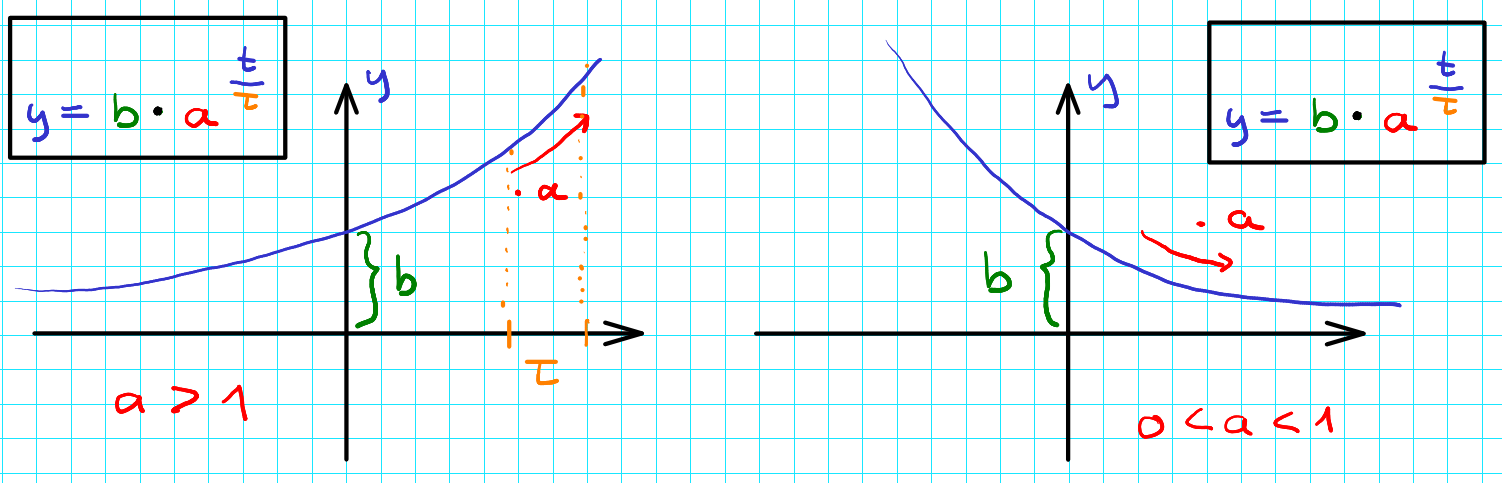 y = b · a^(t/τ)
y
· a
b
τ
a > 1
y = b · a^(t/τ)
y
· a
b
0 < a < 1